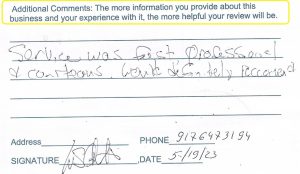 Additional Comments: The more information you provide about this
business and your experience with it, the more helpful your review will be.
Service was fast professional
& courteous, would definitely reccomend
Address PHONE 9176473194
SIGNATURE DATE 5/19/23